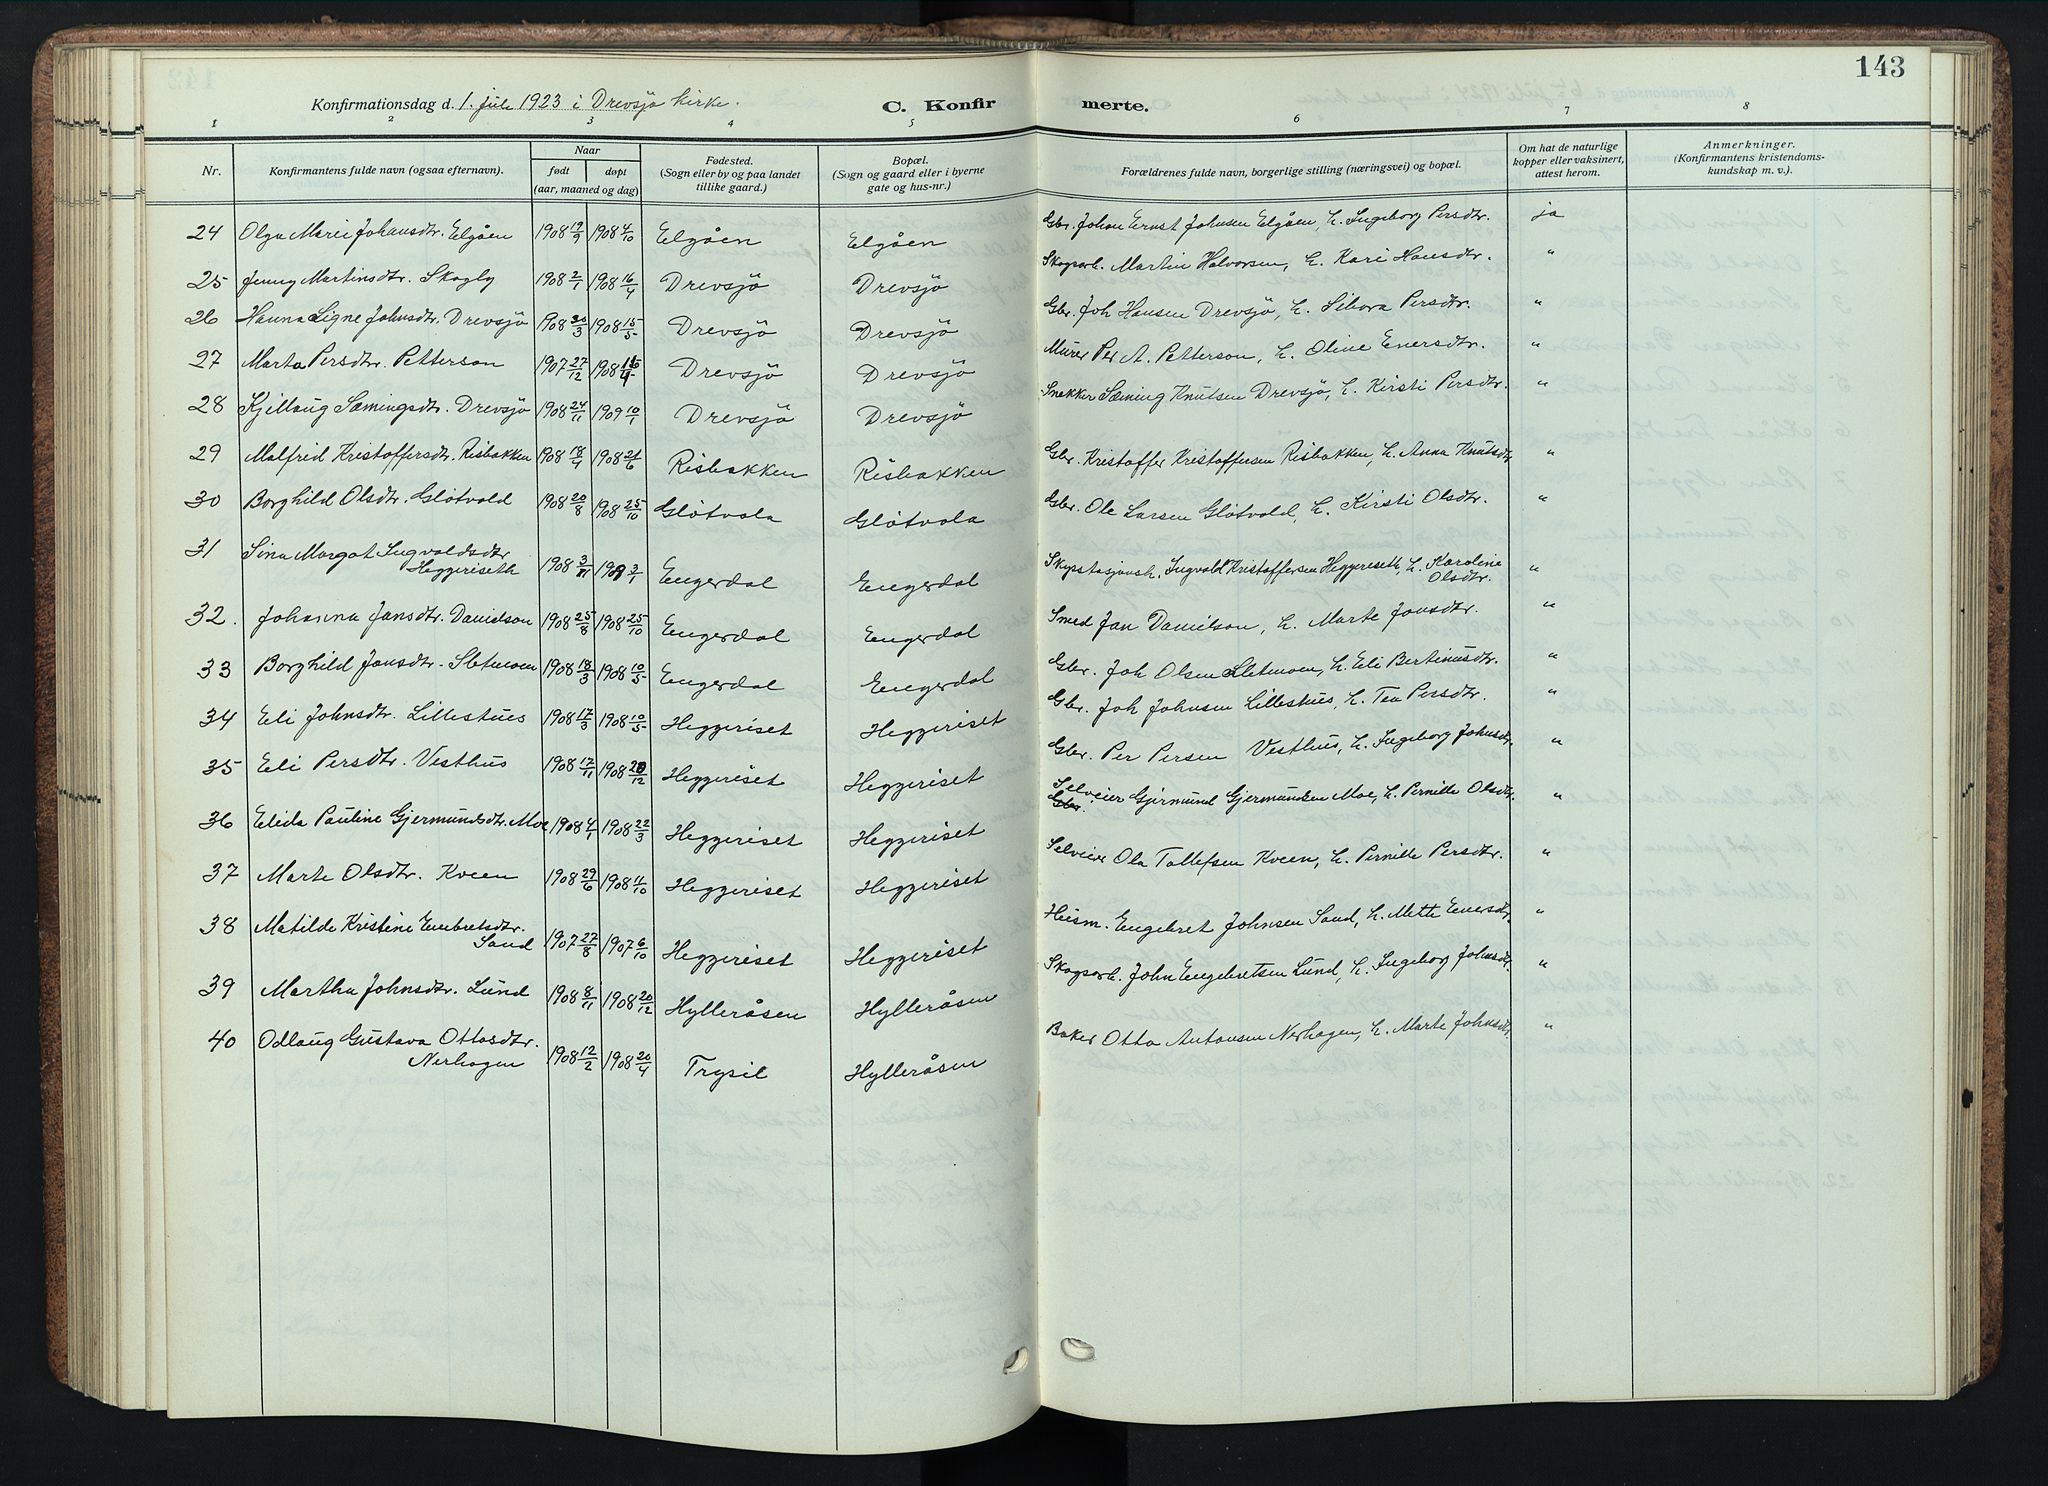 143
Konfirmationsdag d. 1. juli 1923 i Drevsjø kirke. C. Konfirmerte.
1 2 3 4 5 6 7 8
Nr. Konfirmantens fulde navn (ogsaa efternavn). Naar født døpt (aar, maaned og dag) Fødested. (Sogn eller by og paa landet tillike gaard.) Bopæl. (Sogn og gaard eller i byerne gate og hus-nr.) Forældrenes fulde navn, borgerlige stilling (næringsvei) og bopæl. Om hat de naturlige kopper eller vaksinert, attest herom. Anmerkninger. (Konfirmantens kristendomskundskap m. v.)
24 Olga Marei Johansdtr. Elgåen 1908 19/9 1908 4/10 Elgåen Elgåen Gbr. Johan Ernst Johnsen Elgåen, h. Ingeborg Persdtr. ja
25 Jenny Martinsdtr. Skogly 1908 2/1 1908 16/4 Drevsjö Drevsjö Skogsarb. Martin Halvorsen, h. Kari Hansdtr. "
26 Hanna Signe Johnsdtr. Drevsjö 1908 30/3 1908 15/5 Drevsjö Drevsjö Gbr. Joh Hansen Drevsjö, h. Sibora Persdtr. "
27 Marta Persdtr. Petterson 1907 27/12 1908 Drevsjö Drevsjö Murer Per A. Petterson, h. Oline Enersdtr. "
28 Kjellaug Sæmingsdtr. Drevsjö 1908 24/11 1909 10/1 Drevsjö Drevsjö Snekker Sæming Knutsen Drevsjö, h. Kirsti Persdtr. "
29 Malfrid Kristoffersdtr. Risbakken 1908 18/4 1908 21/6 Risbakken Risbakken Gbr. Kristoffer Kristoffersen Risbakken, h. Anna Knutsdtr "
30 Borghild Olsdtr. Glötvold 1908 20/8 1908 25/10 Glötvola Glötvola Gbr. Ole Larsen Glötvold, h. Kirsti Olsdtr. "
31 Sina Margot Ingvaldsdtr Heggeriseth 1908 3/11 1909 3/1 Engerdal Engerdal Skysstasjonsh. Ingvald Kristoffersen Heggeriseth, h. Karoline Olsdtr. "
32. Johanna Jansdtr. Danielson 1908 25/8 1908 25/10 Engerdal Engerdal Smed Jan Danielson, h. Marte Jonsdtr. "
33 Borghild Jonsdtr. Sletmoen 1908 18/3 1908 10/5 Engerdal Engerdal Gbr. Joh Olsen Sletmoen, h. Eli Bertinusdtr. "
34 Eli Johnsdtr. Lillestues 1908 17/3 1908 10/5 Heggeriset Heggeriset Gbr. Joh Johnsen Lillestues, h. Tea Persdtr. "
35 Eli Persdtr. Vesthus 1908 17/11 1908 20/12 Heggeriset Heggeriset Gbr. Per Persen Vesthus, h. Ingeborg Johnsdtr. "
36 Elida Pauline Gjermundsdtr. Moe 1908 4/1 1908 22/3 Heggeriset Heggeriset Selveier Gbr. Gjermund Gjermundsen Moe, h. Pernille Olsdtr. "
37 Marte Olsdtr. Kveen 1908 29/6 1908 11/10 Heggeriset Heggeriset Selveier Ola Tollefsen Kveen, h. Pernille Persdtr. "
38 Matilde Kristine Embretsdtr. Sand 1907 27/8 1907 6/10 Heggeriset Heggeriset Husm. Engebret Johnsen Sand, h. Mette Enersdtr. "
39 Martha Johnsdtr. Lund 1908 8/11 1908 20/12 Hylleråsen Hylleråsen Skogsarb. John Engebretsen Lund, h. Ingeborg Johnsdtr. "
40 Odlaug Gustava Ottosdtr. Nerhagen 1908 12/2 1908 20/4 Trysil Hylleråsen Baker Otto Antonsen Nerhagen, h. Marte Johnsdtr "